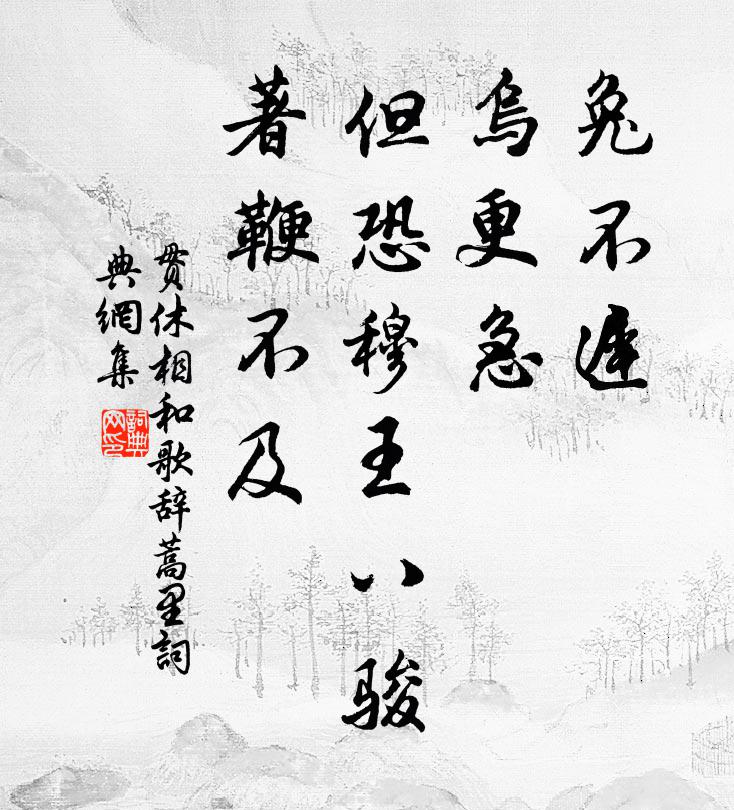 兔不遲
烏更急
但恐穆王八骏
著鞭不及
贯休相和歌辞蒿里詞
典網集
詞典
网印